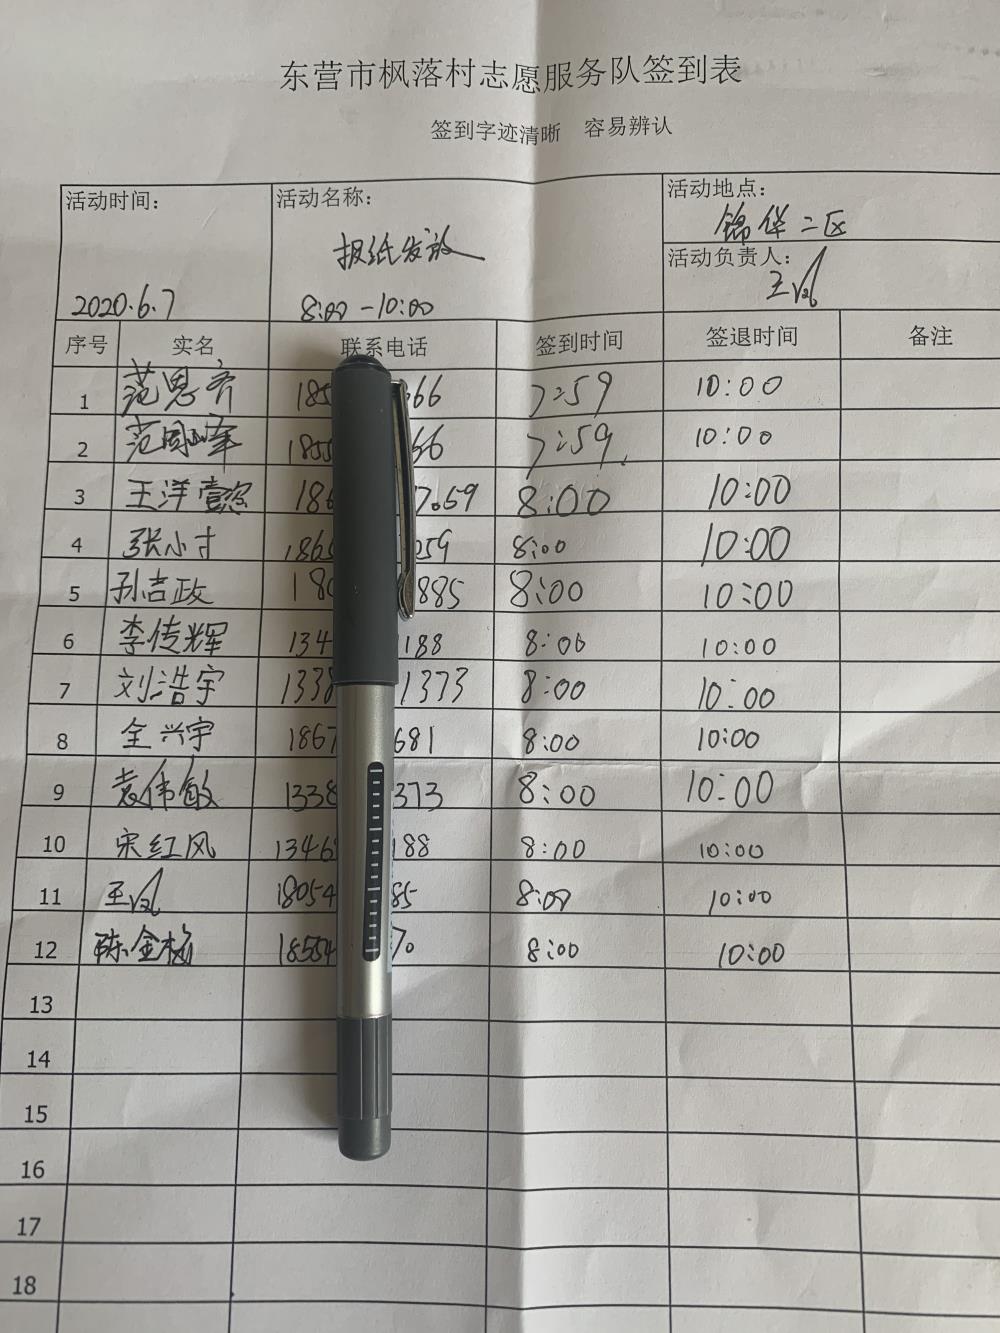 东营市枫落村志愿服务队签到表
签到字迹清晰 容易辨认
活动时间: 活动名称: 活动地点:
报纸发放 锦华二区
活动负责人:
2020.6.7 8:00-10:00 王
序号 实名 联系电话 签到时间 签退时间 备注
1 范思齐 185 66 7:59 10:00
2 范国峰 1855 66 7:59 10:00
3 王洋 186 7059 8:00 10:00
4 张小寸 1865 059 8:00 10:00
5 孙吉政 180 885 8:00 10:00
6 李传辉 134 188 8:00 10:00
7 刘浩宇 1338 1373 8:00 10:00
8 全兴宇 1867 681 8:00 10:00
9 袁伟敏 1338 373 8:00 10:00
10 宋红风 13468 188 8:00 10:00
11 王 18054 85 8:00 10:00
12 陈金梅 18554 70 8:00 10:00
13
14
15
16
17
18